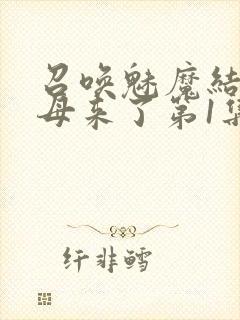 召唤魅魔结
母来了第1集
纤非鳕